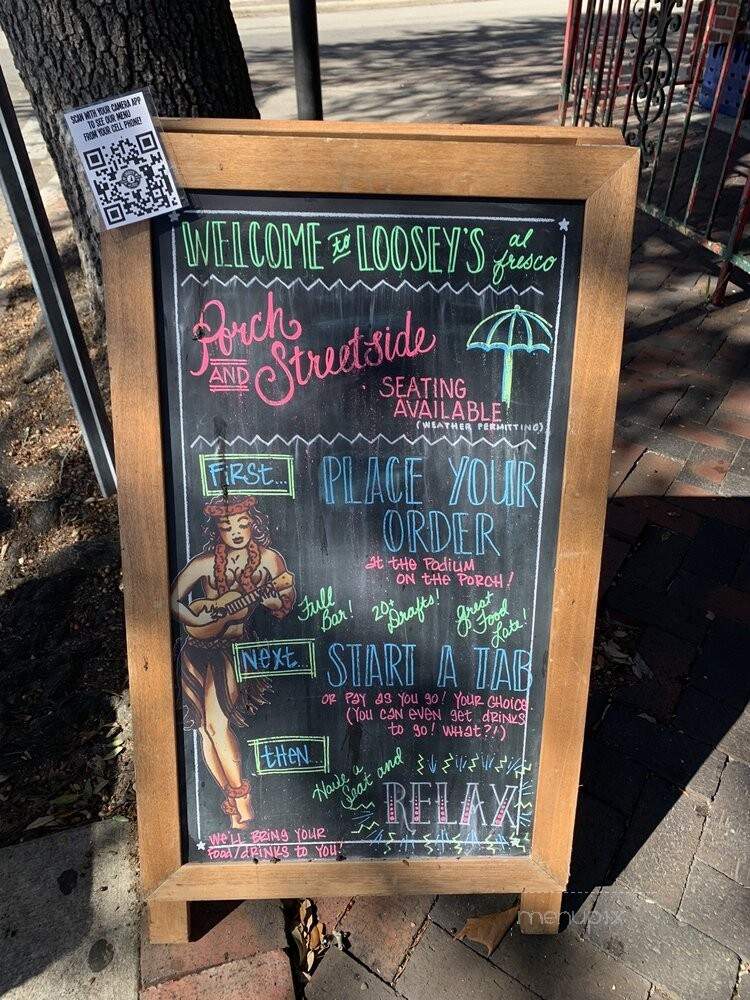 SCAN WITH YOUR CAMERA APP
TO SEE OUR MENU
FROM YOUR CELL PHONE!
WELCOME to LOOSEY'S al
fresco
Porch
AND Streetside
SEATING
AVAILABLE
(WEATHER PERMITTING)
FIRST...
PLACE YOUR
ORDER
at the Podium
on the Porch!
Full
Bar!
20+
Drafts!
great
Food
Late!
NEXT...
START A TAB
or Pay as you go! Your choice.
(You can even get drinks
to go! What?!)
THEN...
Have a
Seat and
RELAX
We'll Bring your
food/drinks to you!
menupix